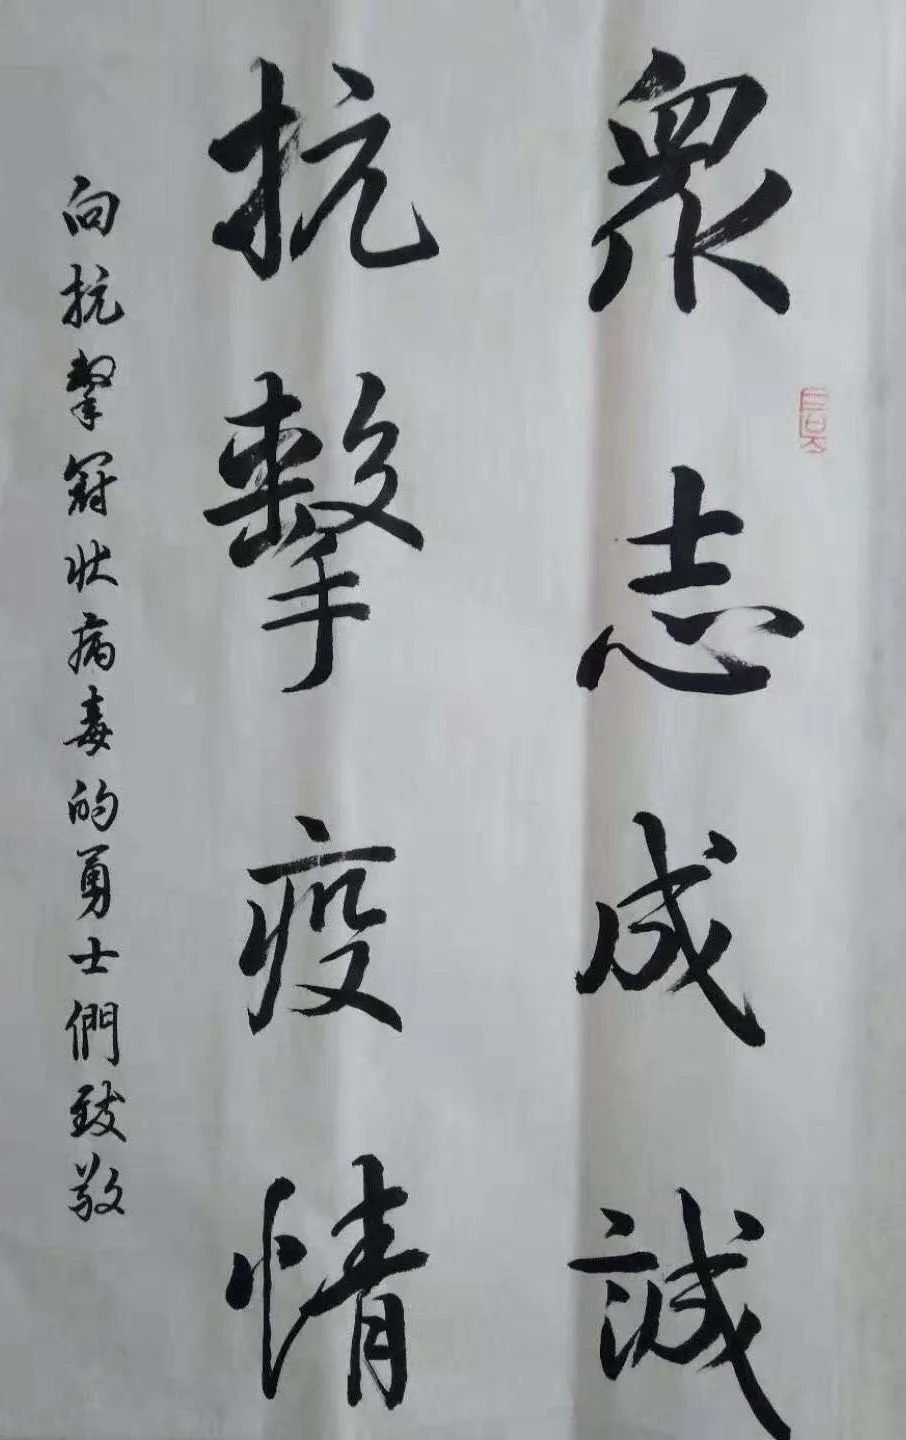 眾志成誠
抗擊疫情
向抗擊冠狀病毒的勇士們致敬